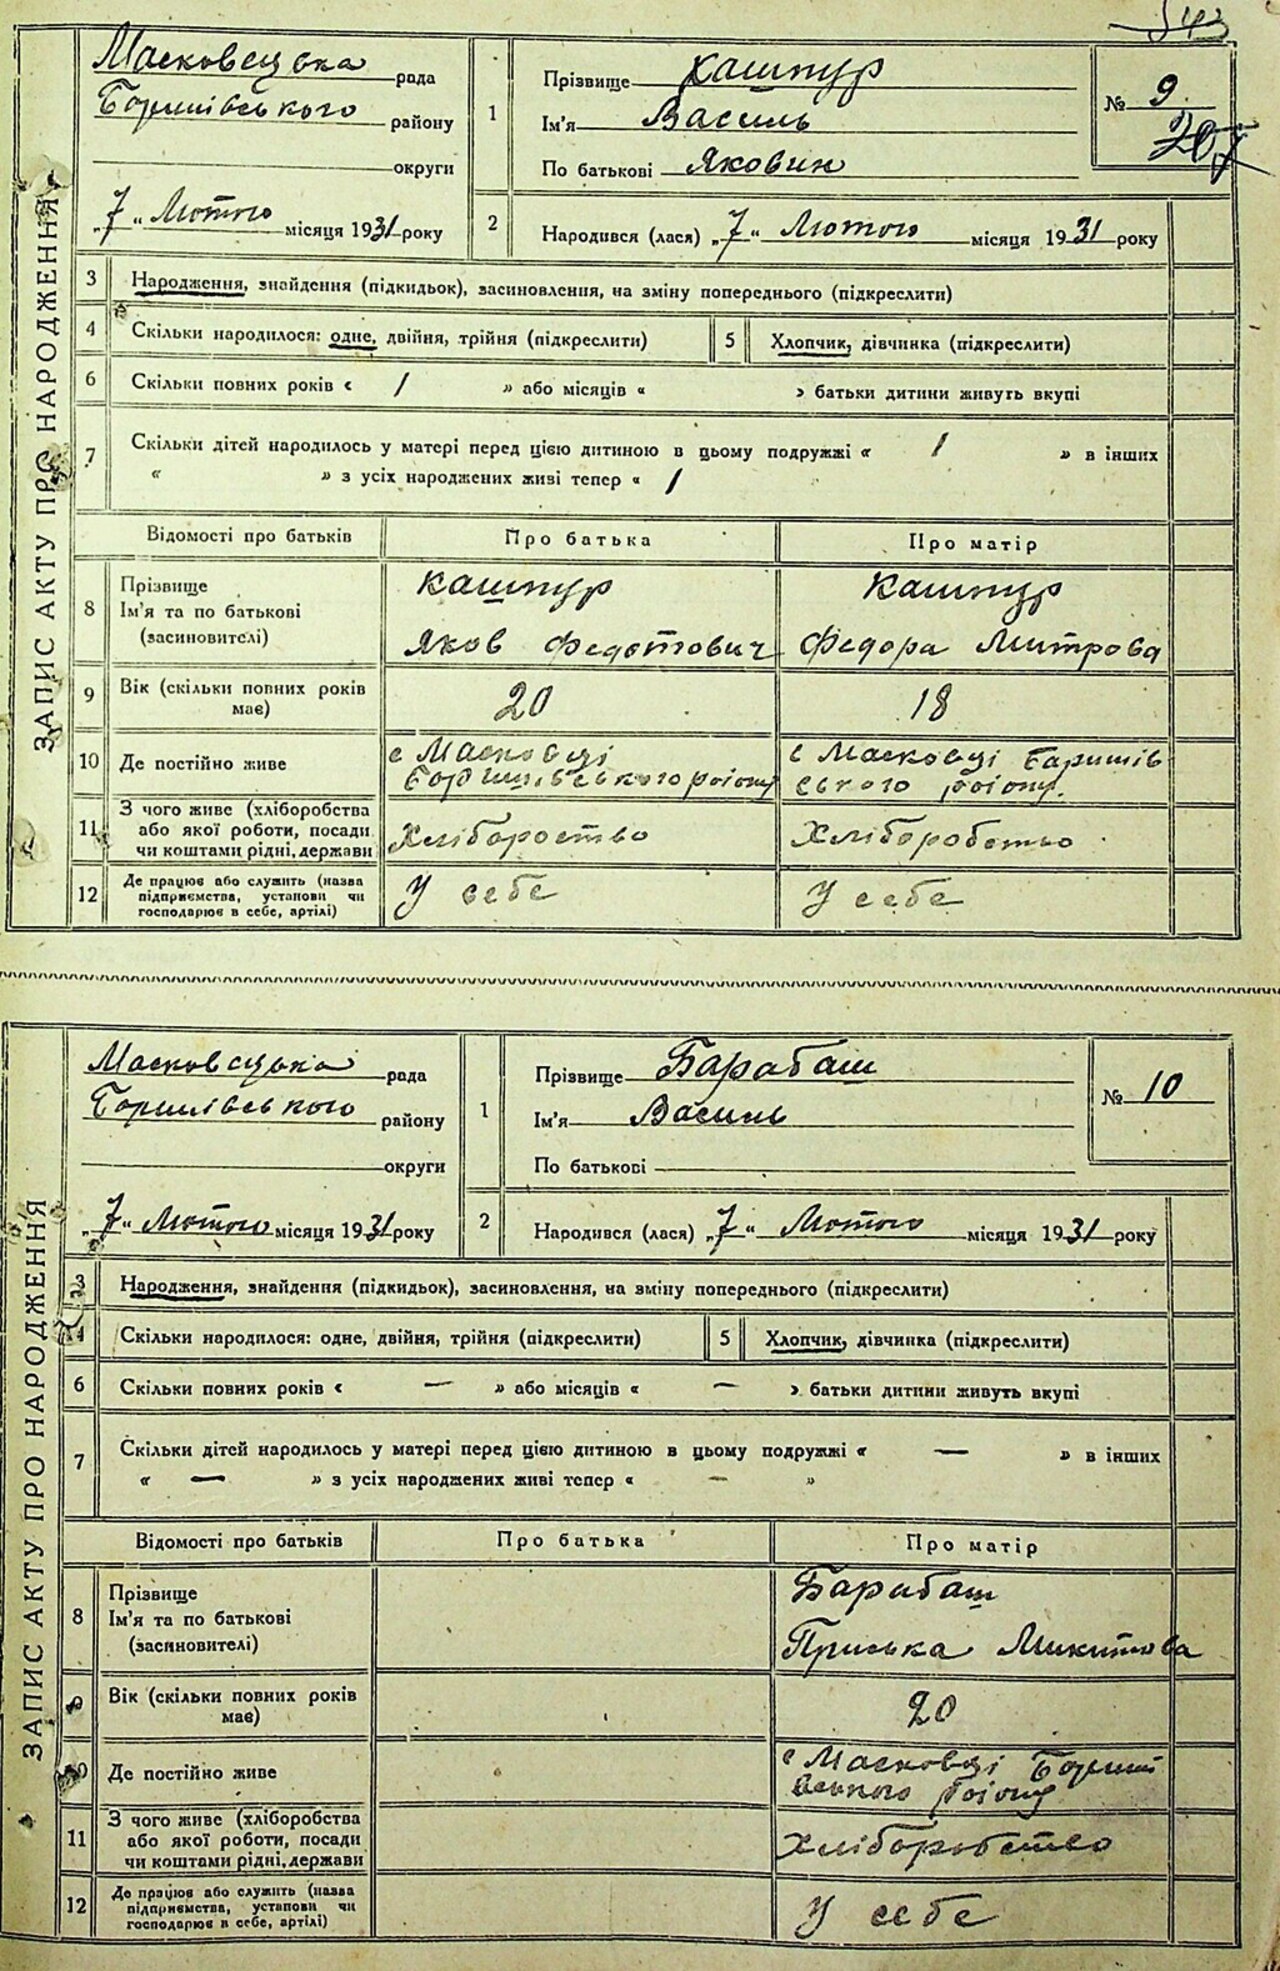 543
ЗАПИС АКТУ ПРО НАРОДЖЕННЯ
Масковецька рада
Баришівського району
округи
„7“ Лютого місяця 1931 року
1
Прізвище Кашпур
Ім'я Василь
По батькові Яковин
№ 9
207
2 Народився (лася) „7“ Лютого місяця 1931 року
3 Народження, знайдення (підкидьок), засиновлення, на зміну попереднього (підкреслити)
4 Скільки народилося: одне, двійня, трійня (підкреслити) 5 Хлопчик, дівчинка (підкреслити)
6 Скільки повних років « 1 » або місяців « » батьки дитини живуть вкупі
7 Скільки дітей народилось у матері перед цією дитиною в цьому подружжі « 1 » в інших
« » з усіх народжених живі тепер « 1
Відомості про батьків Про батька Про матір
8 Прізвище Кашпур Кашпур
Ім'я та по батькові
(засиновителі) Яков Федотович Федора Митрова
9 Вік (скільки повних років має) 20 18
10 Де постійно живе с Масковці Баришівського району с Масковці Баришівського району.
11 З чого живе (хліборобства
або якої роботи, посади
чи коштами рідні, держави Хлібороство Хліборобство
12 Де працює або служить (назва
підприємства, установи чи
господарює в себе, артілі) У себе У себе
ЗАПИС АКТУ ПРО НАРОДЖЕННЯ
Масковецька рада
Баришівського району
округи
„7“ Лютого місяця 1931 року
1
Прізвище Барабаш
Ім'я Василь
По батькові
№ 10
2 Народився (лася) „7“ Лютого місяця 1931 року
3 Народження, знайдення (підкидьок), засиновлення, на зміну попереднього (підкреслити)
4 Скільки народилося: одне, двійня, трійня (підкреслити) 5 Хлопчик, дівчинка (підкреслити)
6 Скільки повних років « — » або місяців « — » батьки дитини живуть вкупі
7 Скільки дітей народилось у матері перед цією дитиною в цьому подружжі « — » в інших
« — » з усіх народжених живі тепер « — »
Відомості про батьків Про батька Про матір
8 Прізвище Барабаш
Ім'я та по батькові
(засиновителі) Приська Микитова
9 Вік (скільки повних років має) 20
10 Де постійно живе с Масковці Баришівського району
11 З чого живе (хліборобства
або якої роботи, посади
чи коштами рідні, держави Хліборобство
12 Де працює або служить (назва
підприємства, установи чи
господарює в себе, артілі) У себе